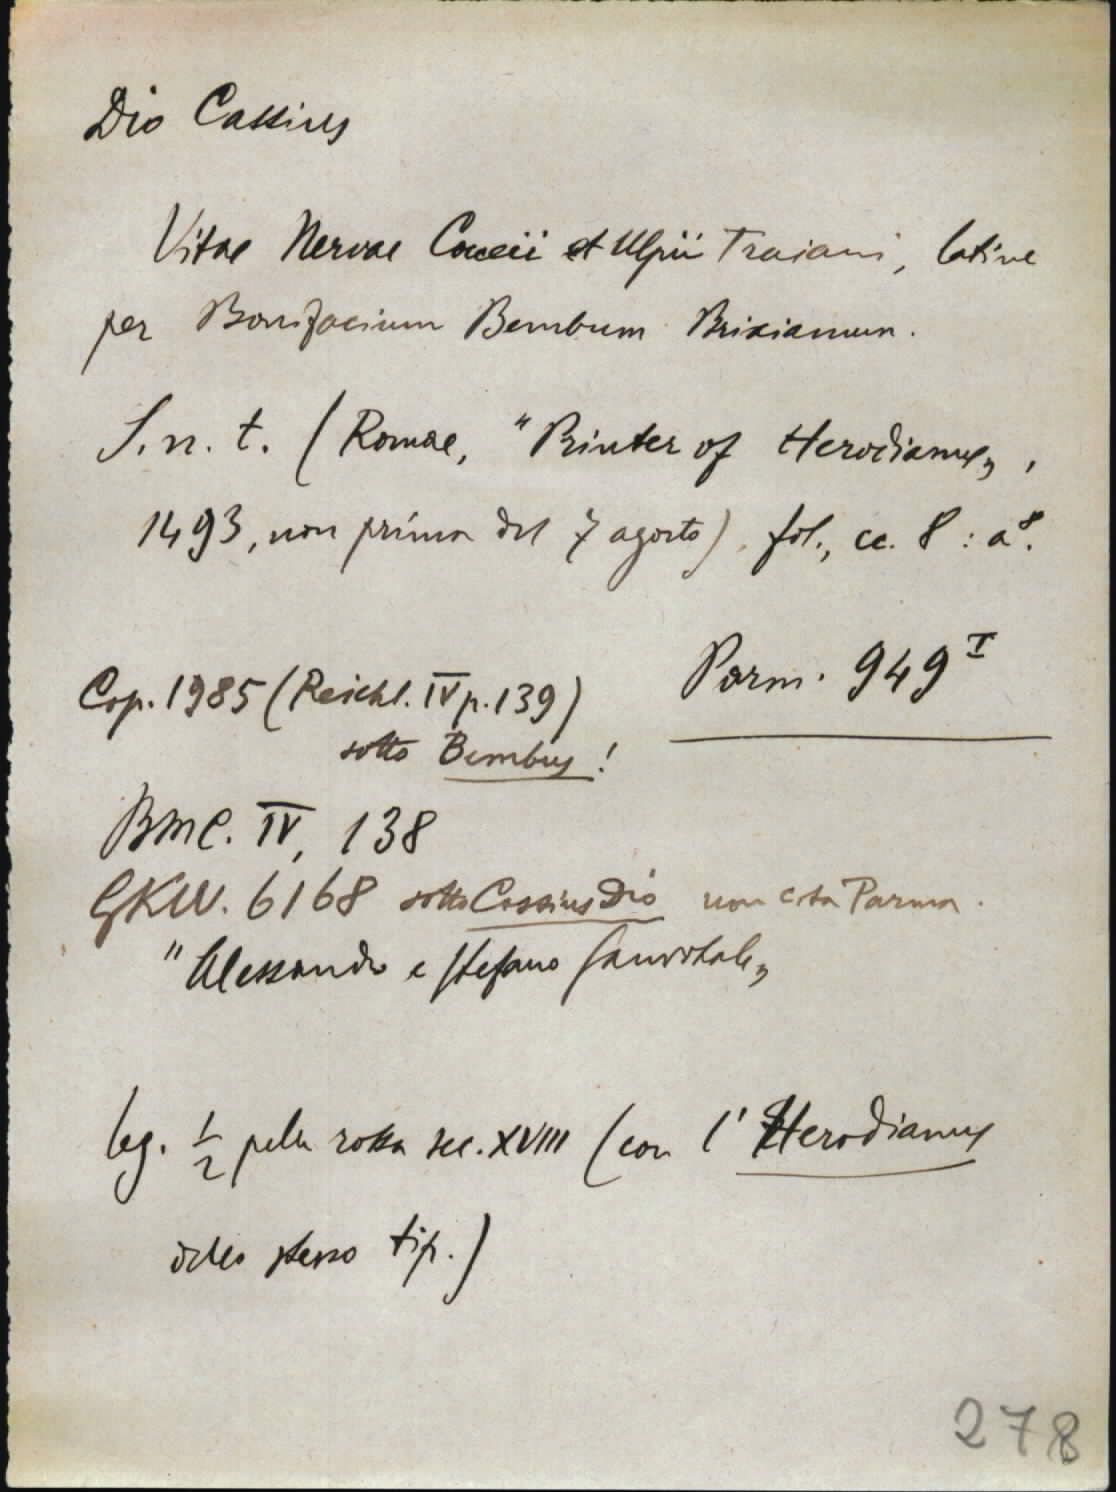 Dio Cassius
Vitae Nervae Cocceii et Ulpii Traiani, latine
per Bonifacium Bembum Brixianum.
S. n. t. (Romae, "Printer of Herodianus„,
1493, non prima del 7 agosto). fol., cc. 8 : a⁸.
Parm. 949ᴵ
Cop. 1985 (Reichl. IV p. 139)
sotto Bembus !
BMC. IV, 138
GKW. 6168 sotto Cassius Dio non cita Parma.
"Alessandro e Stefano Sanvitale„
leg. 1/2 pelle rossa sec. XVIII (con l' Herodianus
dello stesso tip.)
278